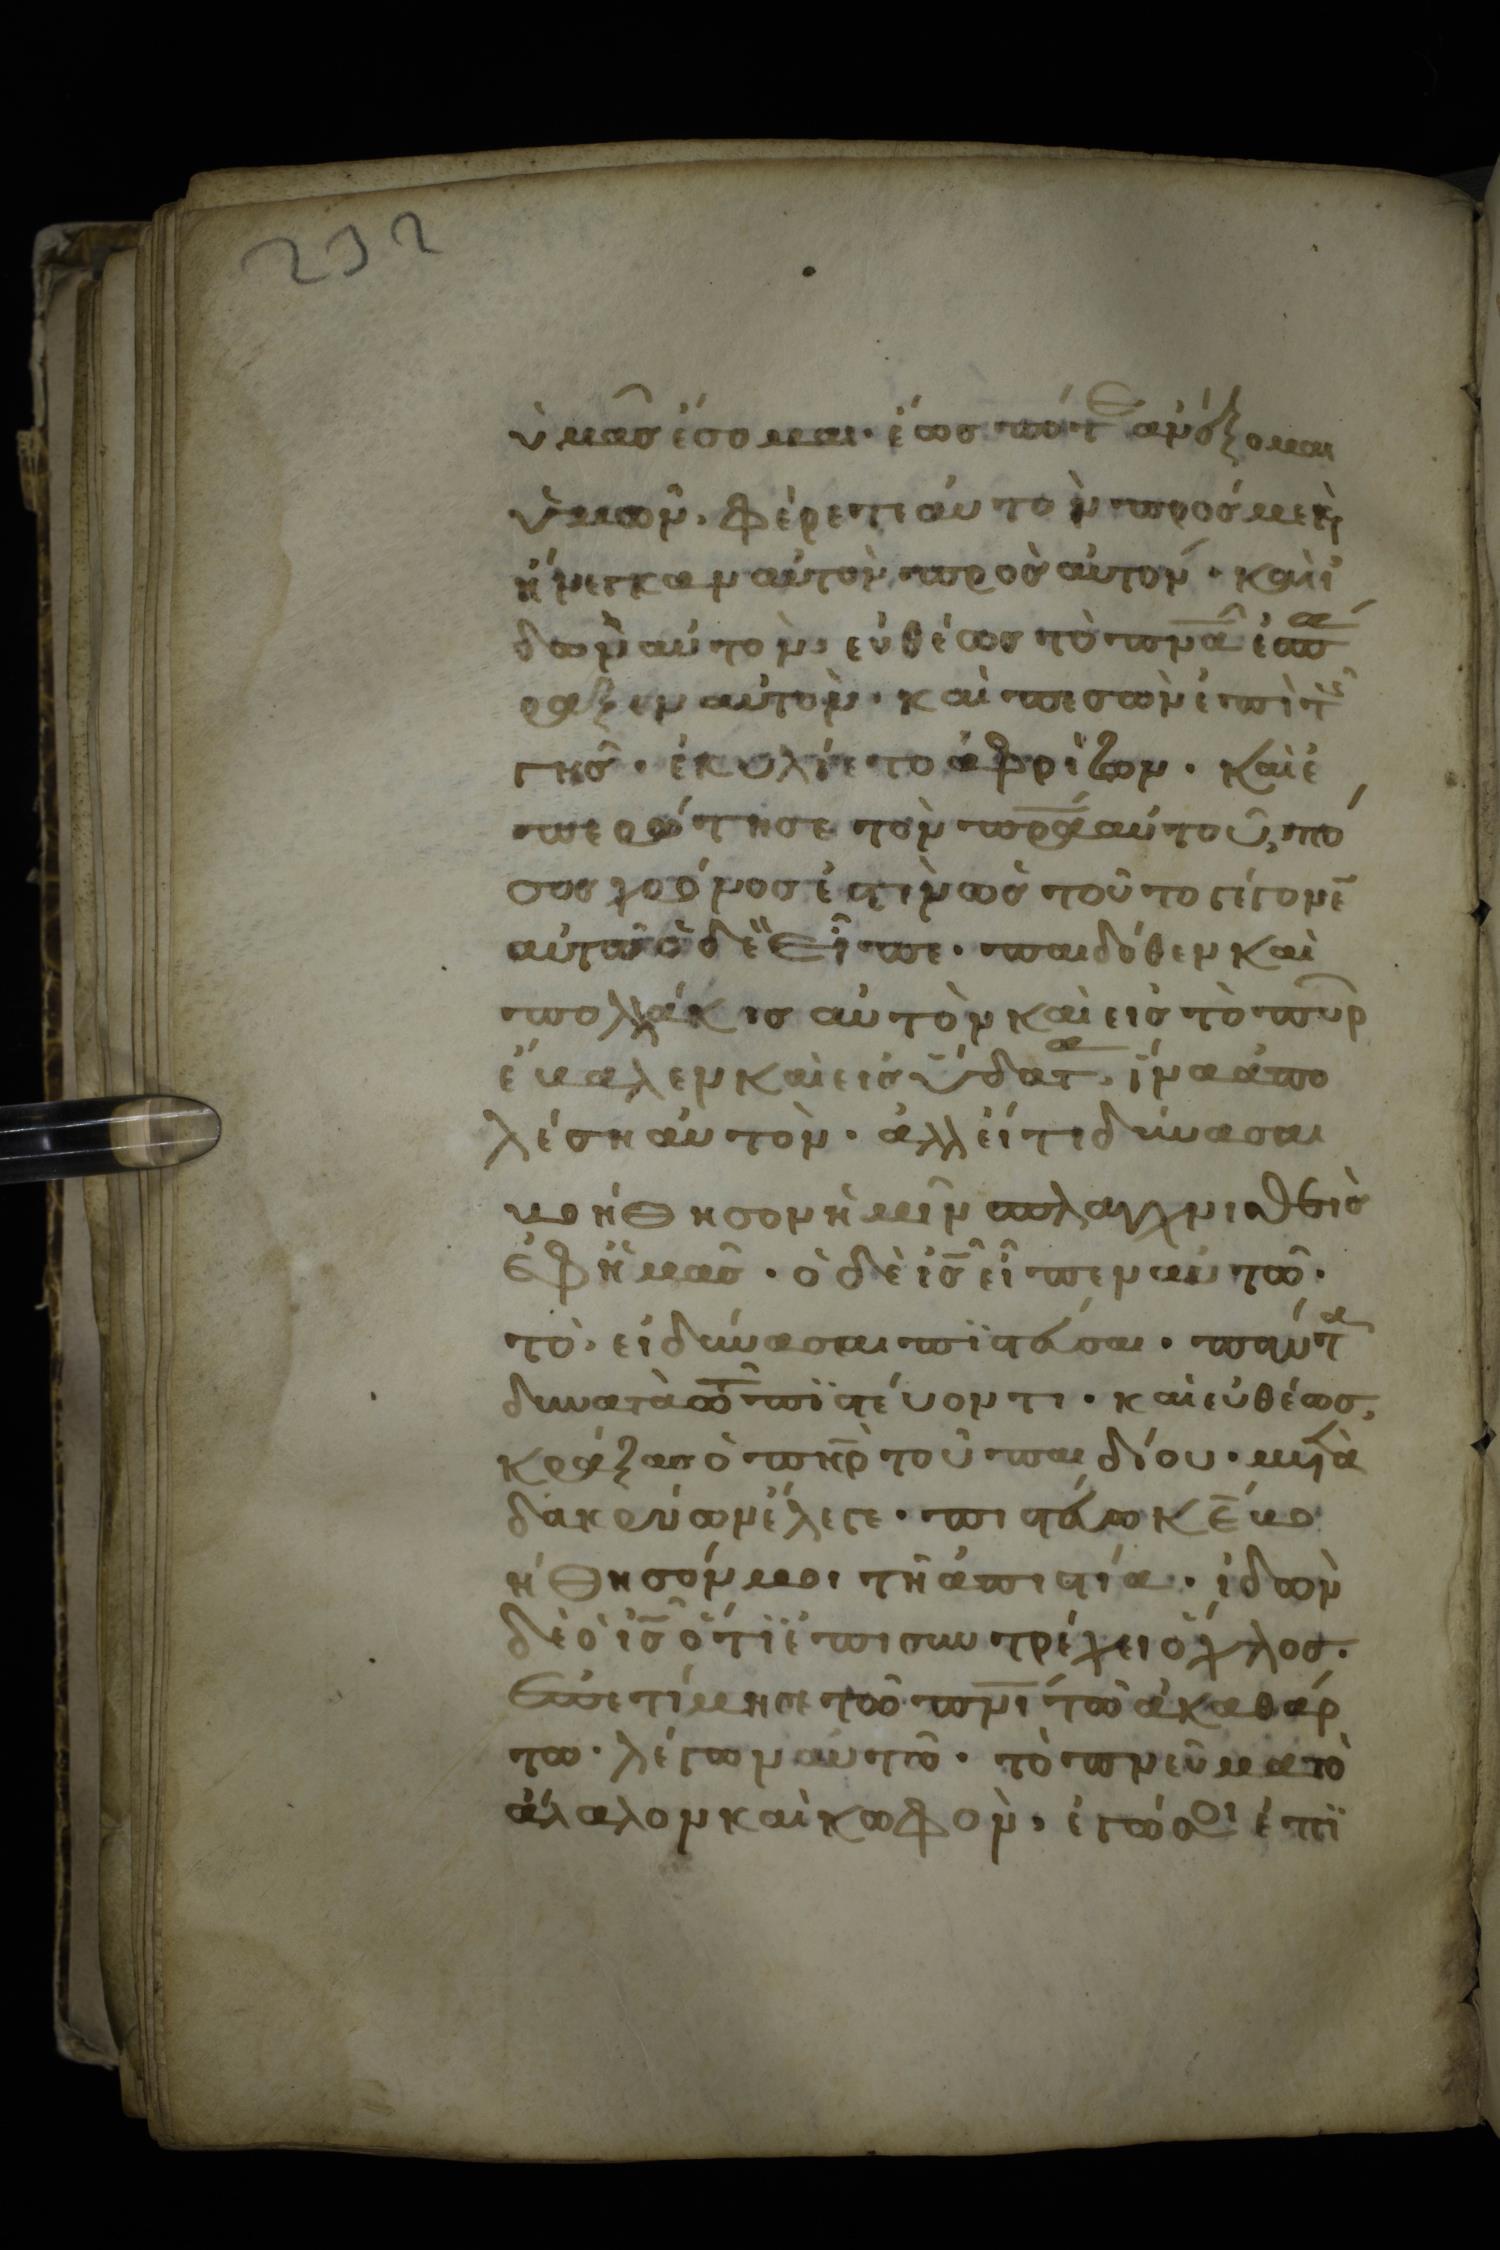 232
ὑμᾶσ ἔσομαι· ἕωσ πότε ἀνέξομαι
ὑμῶν· φέρετε αὐτὸν πρόσ με καὶ
ἤνεγκαν αὐτὸν πρὸσ αὐτόν· καὶ ἰ
δὼν αὐτὸν, εὐθέωσ τὸ πνᾶ ἐσπά
ραξεν αὐτὸν· καὶ πεσὼν ἐπὶ τῆσ
γῆσ· ἐκυλίετο ἀφρίζων· καὶ ἐ
περώτησε τὸν πρᾱ αὐτοῦ, πό
σοσ χρόνοσ ἐστὶν ὡσ τοῦτο γέγονεν
αὐτῶ ὁ δὲ εἶπε· παιδόθεν καὶ
πολλάκισ αὐτὸν καὶ εἰσ τὸ πῦρ
ἔβαλεν καὶ εἰσ ὕδατα, ἵνα ἀπο
λέση αὐτὸν· ἀλλ εἴ τι δύνασαι
βοήθησον ἡμῖν σπλαγχνισθεὶσ
ἐφ ἡμᾶσ· ὁ δὲ ισ̄ εἶπεν αὐτῶ·
τὸ· εἰ δύνασαι πϊστεῦσαι· πάντα
δυνατὰ τῶ πϊστεύοντι· καὶ εὐθέωσ,
κράξασ ὁ πη̄ρ τοῦ παιδίου· μετὰ
δακρύων ἔλεγε· πιστεύω κε̄ βο
ήθησόν μοι τῆ ἀπιστία· ἰδὼν
δὲ ὁ ισ̄ ὅτϊ ἐπισυντρέχει ὄχλοσ·
ἐπετίμησε τῶ πνῑ τῶ ἀκαθάρ
τω· λέγων αὐτῶ· τὸ πνεῦμα τὸ
ἄλαλον καὶ κωφὸν, ἐγώ σοι ἐπϊ